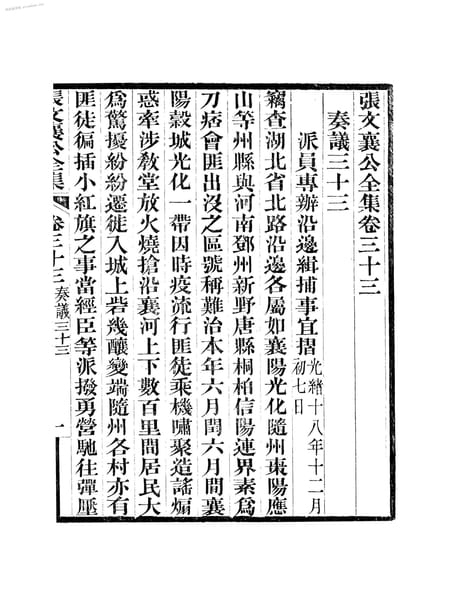 張文襄公全集卷三十三
奏議三十三
派員專辦沿邊緝捕事宜摺光緒十八年十二月初七日
竊查湖北省北路沿邊各屬如襄陽光化隨州棗陽應
山等州縣與河南鄧州新野唐縣桐柏信陽連界素為
刀痞會匪出沒之區號稱難治本年六月閏六月間襄
陽穀城光化一帶因時疫流行匪徒乘機嘯聚造謠煽
惑牽涉敎堂放火燒搶沿襄河上下數百里間居民大
為驚擾紛紛遷徙入城上砦幾釀變端隨州各村亦有
匪徒徧插小紅旗之事當經臣等派撥勇營馳往彈壓
張文襄公全集 卷三十三 奏議三十三 一